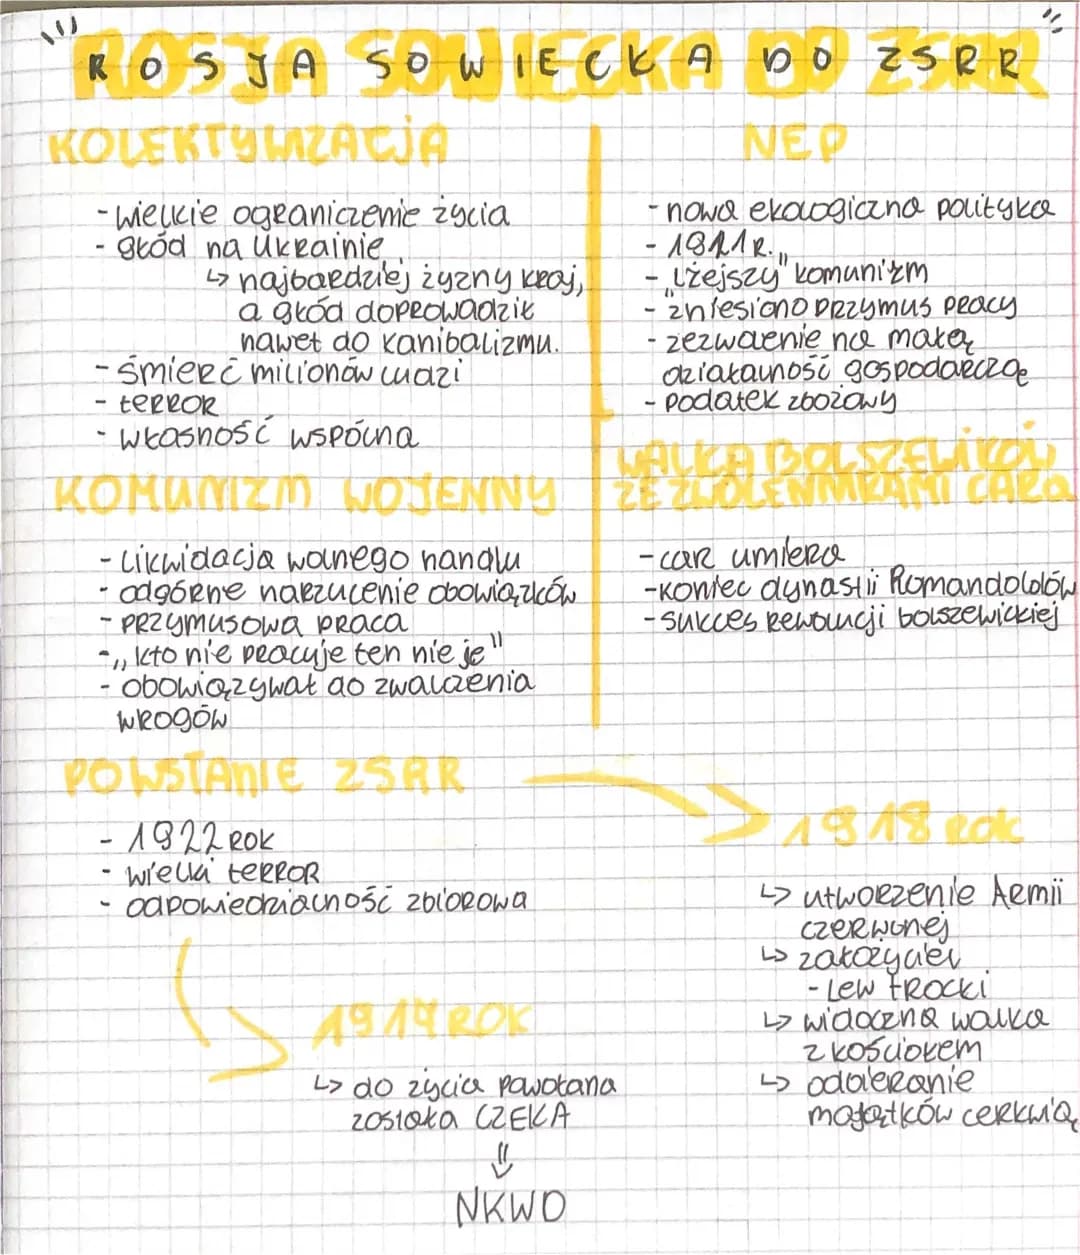 "ROSJA SOWIECKA DO ZSRR"
KOLEKTYWIZACJA
- wielkie ograniczenie życia
- głód na Ukrainie
↳ najbardziej żyzny kraj,
a głód doprowadził
nawet do kanibalizmu.
- śmierć milionów ludzi
- terror
- własność wspólna
KOMUNIZM WOJENNY
- likwidacja wolnego handlu
- odgórne narzucenie obowiązków
- przymusowa praca
- „kto nie pracuje ten nie je"
- obowiązywał do zwalczenia
wrogów
NEP
- nowa ekologiczna polityka
- 1921 r.
- „lżejszy" komunizm
- zniesiono przymus pracy
- zezwolenie na małą
działalność gospodarczą
- podatek zbożowy
WALKA BOLSZEWIKÓW
ZE ZWOLENNIKAMI CARA
- car umiera
- koniec dynastii Romandolów
- sukces rewolucji bolszewickiej
POWSTANIE ZSRR
- 1922 rok
- wielki terror
- odpowiedzialność zbiorowa
1917 ROK
↳ do życia powołana
została CZEKA
⇓
NKWD
1918 rok
↳ utworzenie Armii
czerwonej
↳ założyciel
- Lew Trocki
↳ widoczna walka
z kościołem
↳ odbieranie
majątków cerkwią